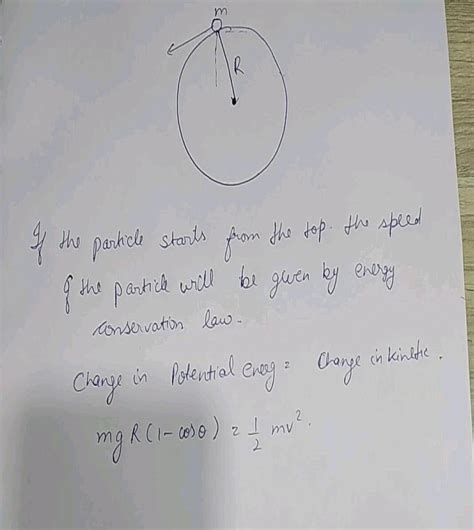 m
R
If the particle starts from the top. the speed
of the particle will be given by energy
conservation law.
Change in Potential energ = Change in kinetic.
mg R (1 - cosθ) = 1/2 mv².